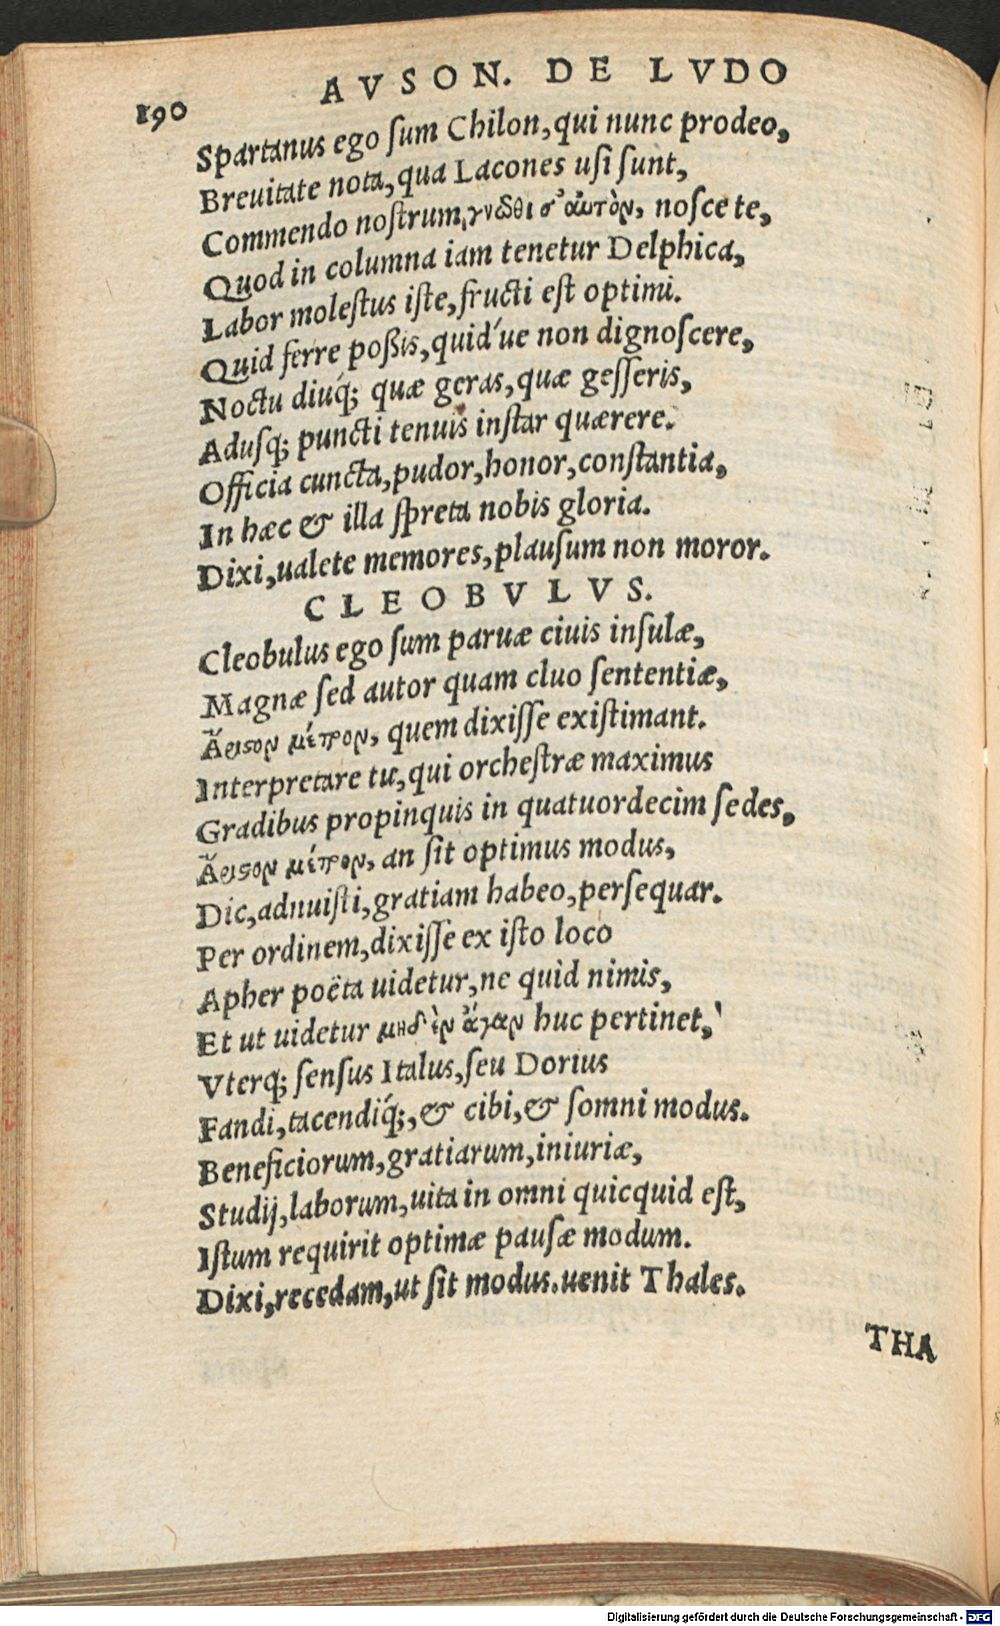 190
AVSON. DE LVDO
Spartanus ego ſum Chilon, qui nunc prodeo,
Breuitate nota, qua Lacones uſi ſunt,
Commendo noſtrum, γνῶθι σʼ αὐτὸν, noſce te,
Quod in columna iam tenetur Delphica,
Labor moleſtus iſte, fructi eſt optimi.
Quid ferre poßis, quid´ue non dignoſcere,
Noctu diuq́; quæ geras, quæ geſſeris,
Aduſq; puncti tenuis inſtar quærere.
Officia cuncta, pudor, honor, conſtantia,
In hæc & illa ſpreta nobis gloria.
Dixi, ualete memores, plauſum non moror.
CLEOBVLVS.
Cleobulus ego ſum paruæ ciuis inſulæ,
Magnæ ſed autor quam cluo ſententiæ,
Ἄριστον μέτρον, quem dixiſſe exiſtimant.
Interpretare tu, qui orcheſtræ maximus
Gradibus propinquis in quatuordecim ſedes,
Ἄριστον μέτρον, an ſit optimus modus,
Dic, adnuiſti, gratiam habeo, perſequar.
Per ordinem, dixiſſe ex iſto loco
Apher poëta uidetur, ne quìd nimis,
Et ut uidetur μηδʼ ὲν ἄγαν huc pertinet,
Vterq; ſenſus Italus, ſeu Dorius
Fandi, tacendiq́;, & cibi, & ſomni modus.
Beneficiorum, gratiarum, iniuriæ,
Studij, laborum, uita in omni quicquid eſt,
Iſtum requirit optimæ pauſæ modum.
Dixi, recedam, ut ſit modus. uenit Thales.
THA
Digitalisierung gefördert durch die Deutsche Forschungsgemeinschaft - DFG